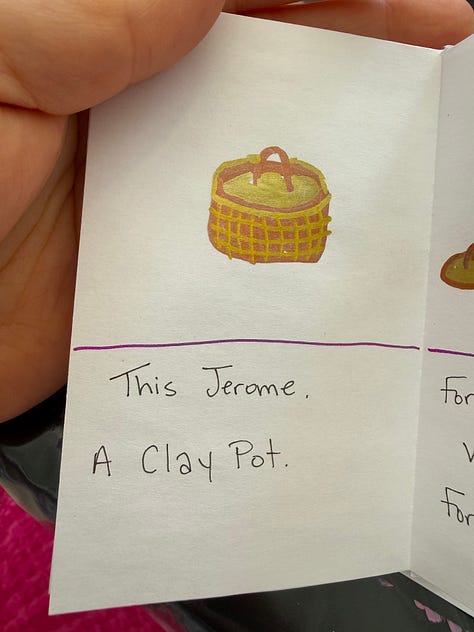 This Jerome.
A Clay Pot.
For
For